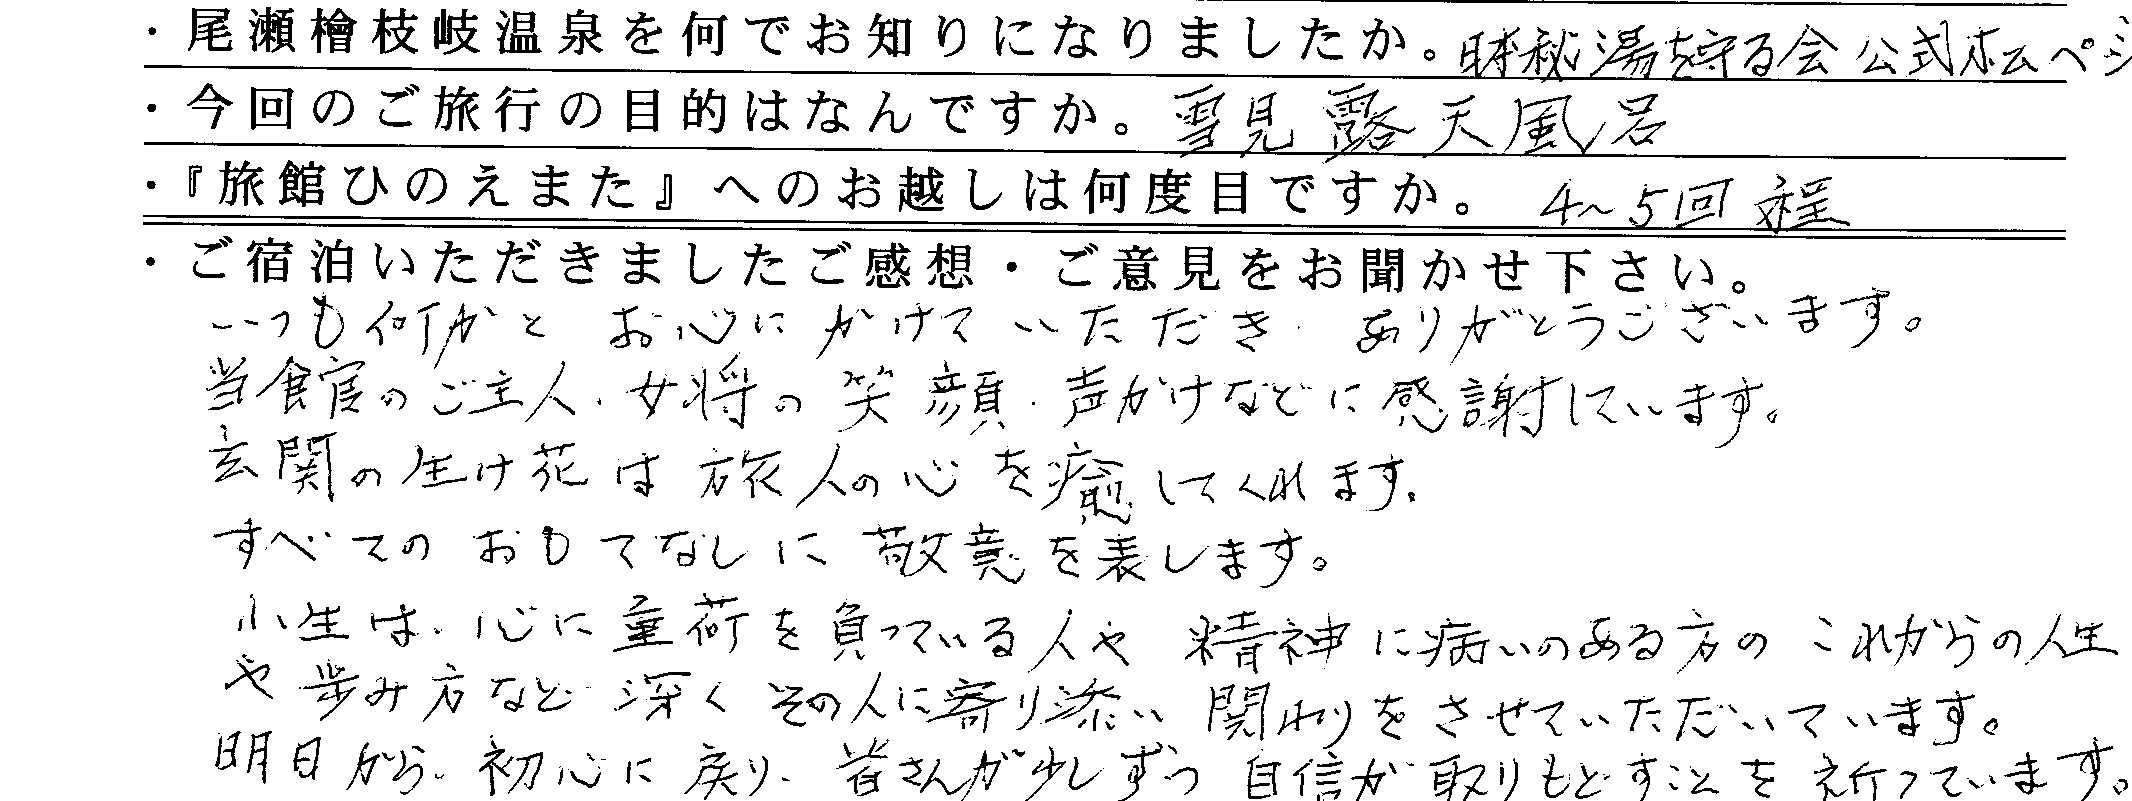 ・尾瀬檜枝岐温泉を何でお知りになりましたか。日本秘湯を守る会 公式ホームページ
・今回のご旅行の目的はなんですか。雪見露天風呂
・『旅館ひのえまた』へのお越しは何度目ですか。4～5回程
・ご宿泊いただきましたご感想・ご意見をお聞かせ下さい。
いつも何かとお心にかけていただき、ありがとうございます。
当館のご主人、女将の笑顔、声かけなどに感謝しています。
玄関の生け花は旅人の心を癒してくれます。
すべてのおもてなしに敬意を表します。
小生は、心に重荷を負っている人や精神に病いのある方のこれからの人生
や歩み方など深くその人に寄り添い関わりをさせていただいています。
明日から、初心に戻り、皆さんが少しずつ自信が取りもどすことを祈っています。